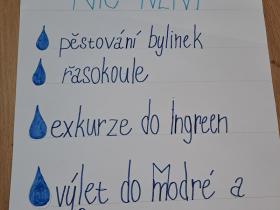 pěstování bylinek
řasokoule
exkurze do Ingreen
výlet do Modré a